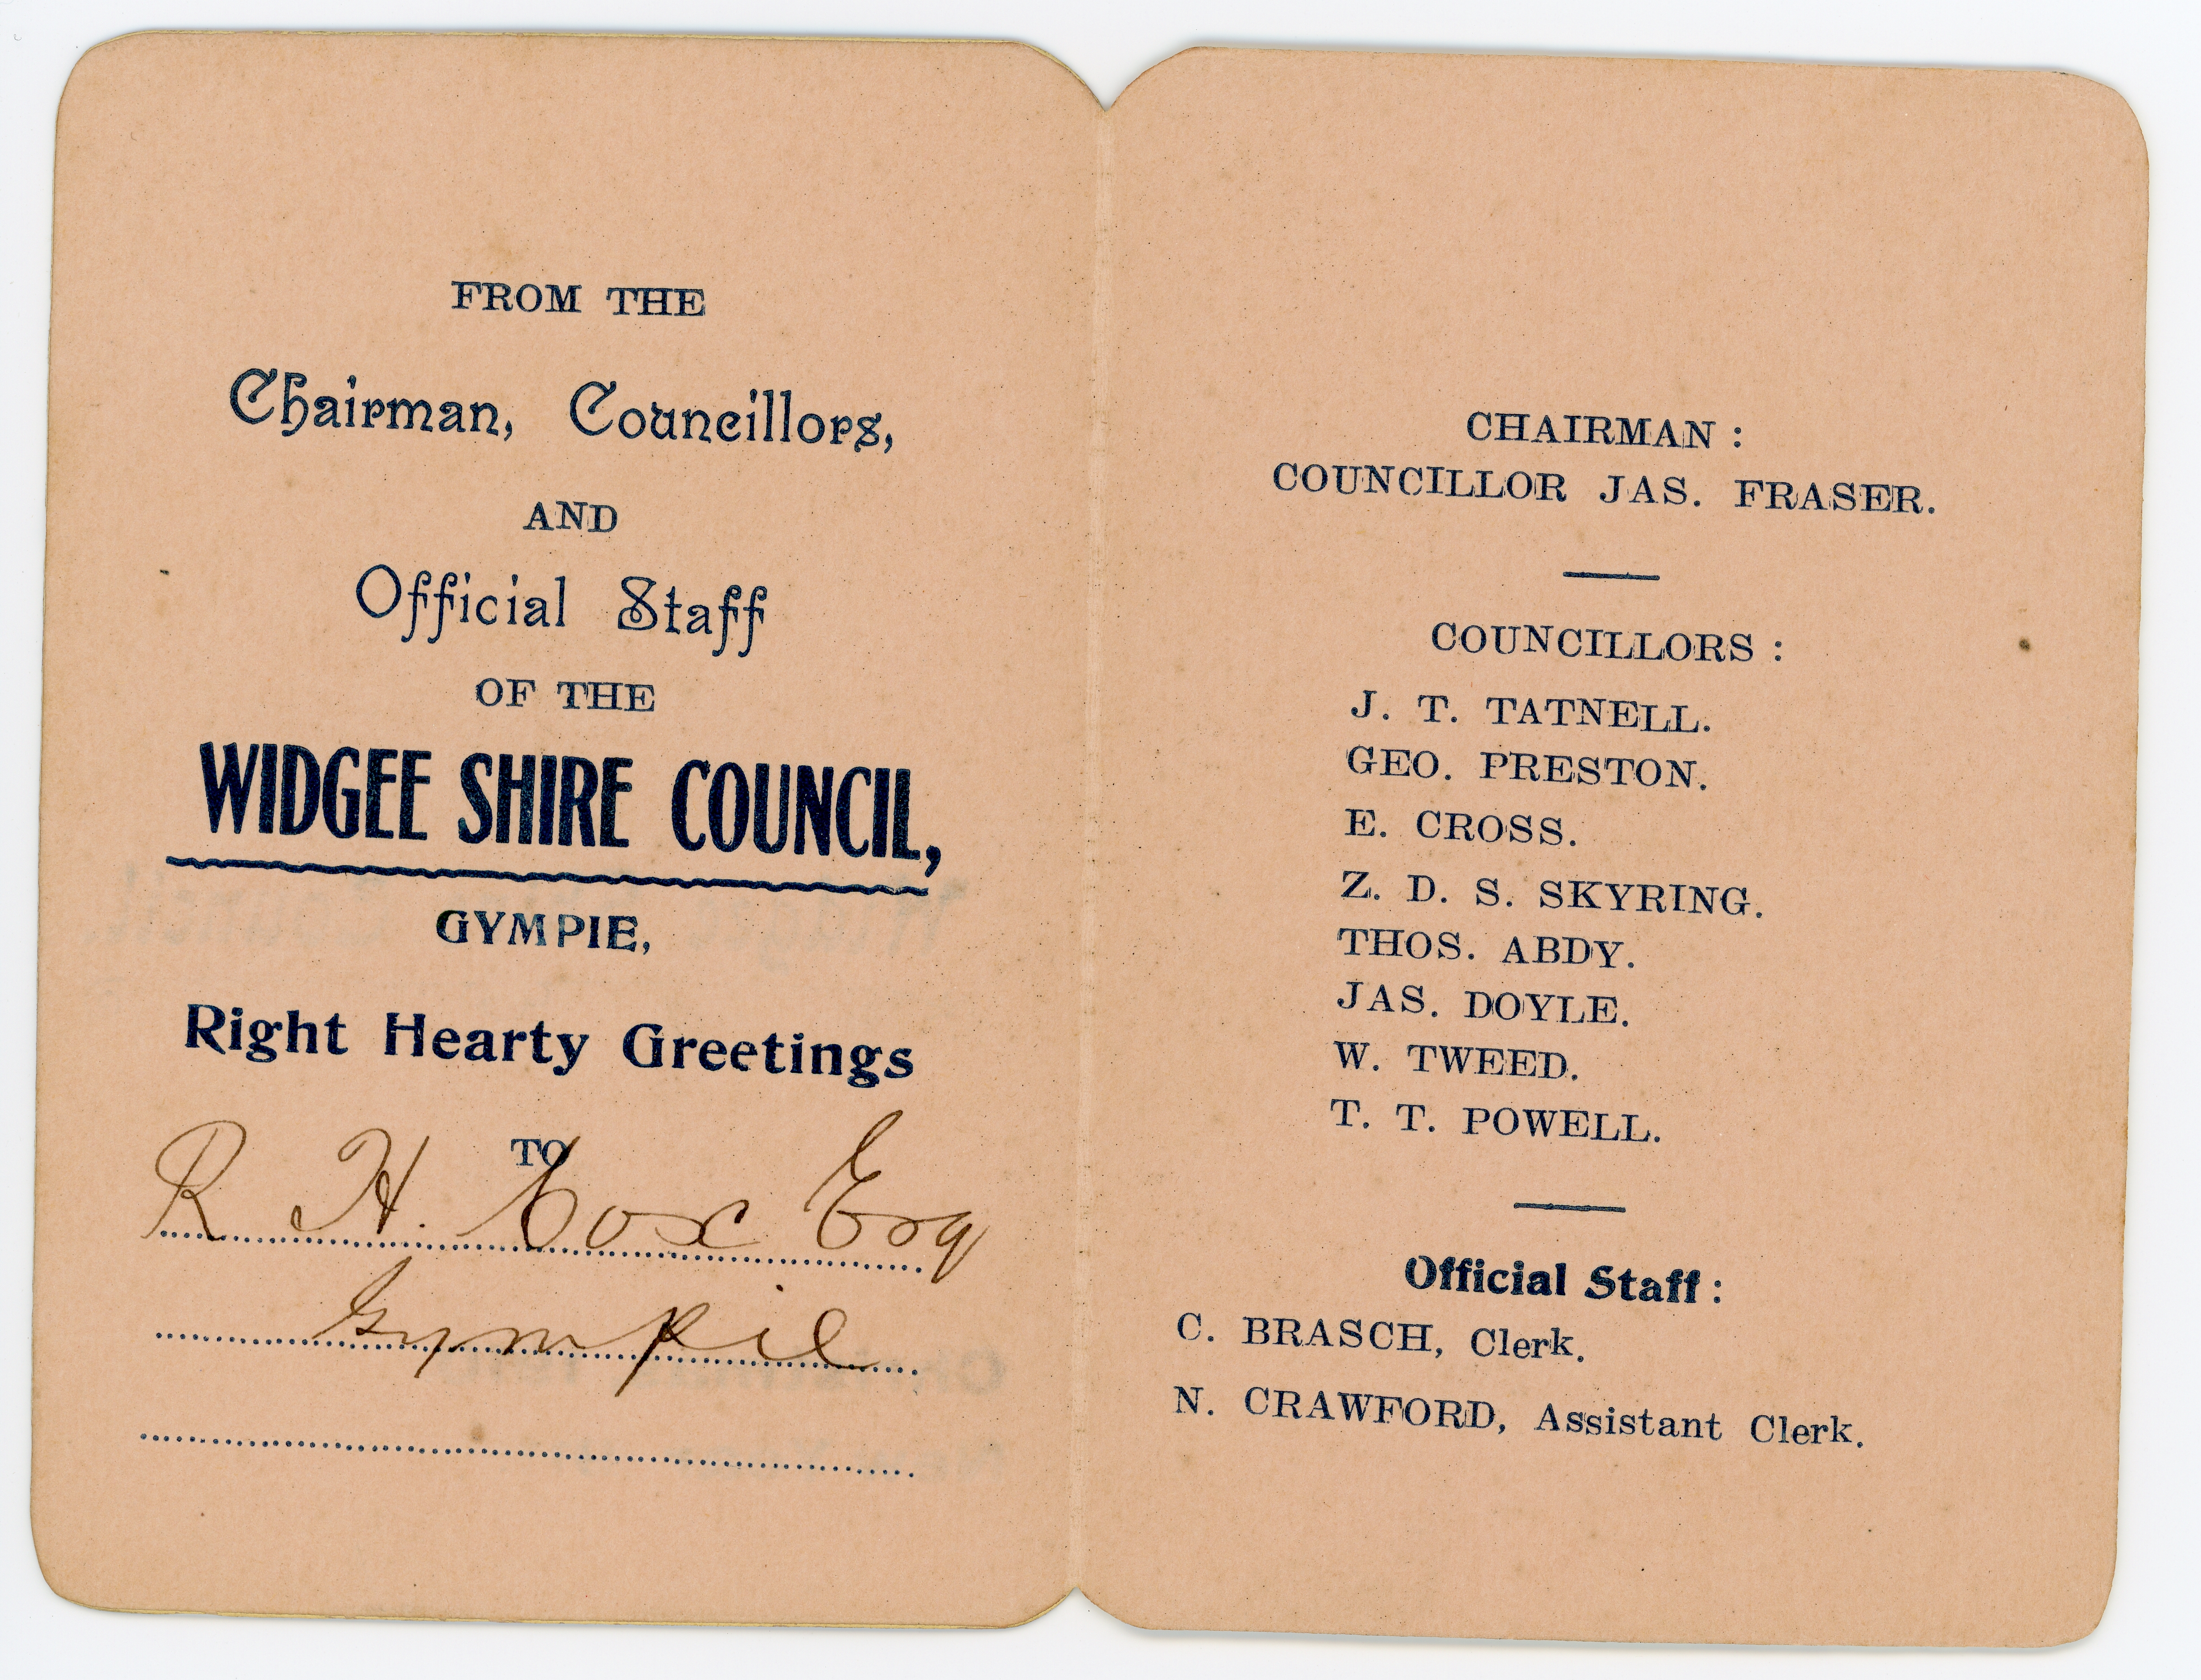 FROM THE
Chairman, Councillors,
AND
Official Staff
OF THE
WIDGEE SHIRE COUNCIL,
GYMPIE,
Right Hearty Greetings
TO
R. H. Cox Esq
Gympie
CHAIRMAN :
COUNCILLOR JAS. FRASER.
COUNCILLORS :
J. T. TATNELL.
GEO. PRESTON.
E. CROSS.
Z. D. S. SKYRING.
THOS. ABDY.
JAS. DOYLE.
W. TWEED.
T. T. POWELL.
Official Staff :
C. BRASCH, Clerk.
N. CRAWFORD, Assistant Clerk.